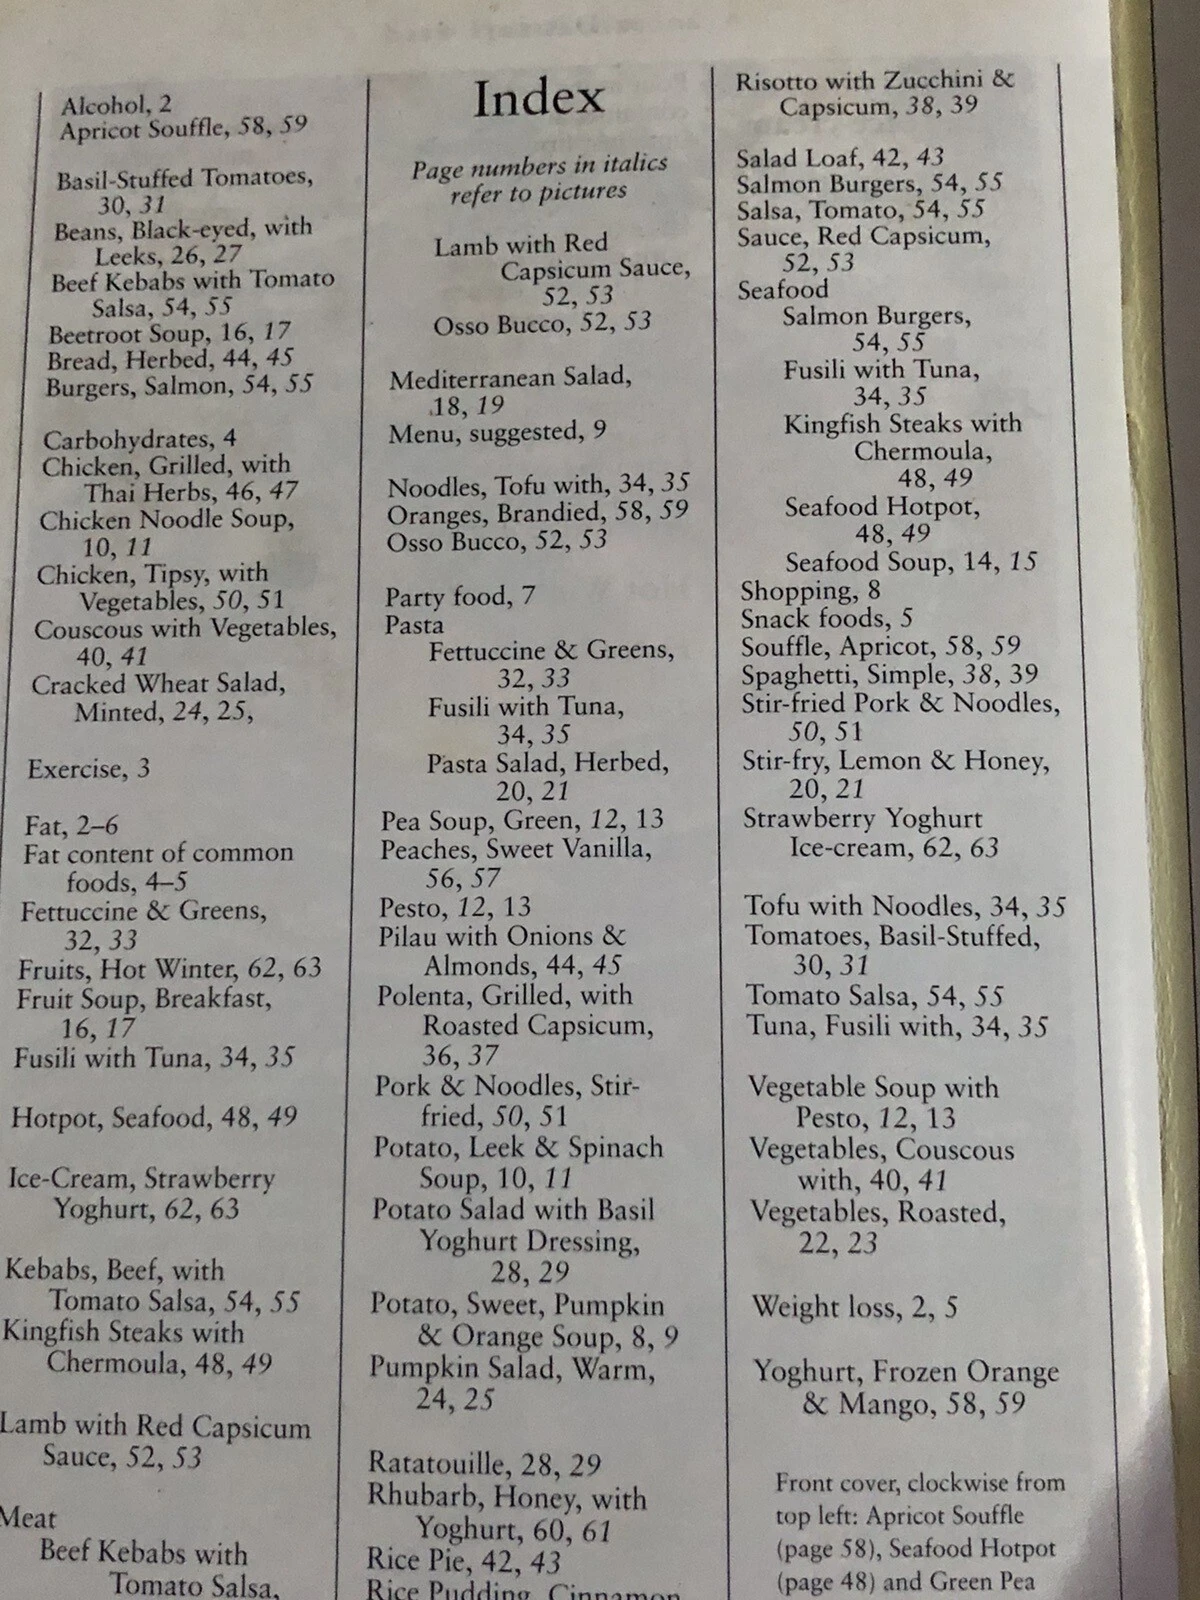 Alcohol, 2
Apricot Souffle, 58, 59
Basil-Stuffed Tomatoes,
30, 31
Beans, Black-eyed, with
Leeks, 26, 27
Beef Kebabs with Tomato
Salsa, 54, 55
Beetroot Soup, 16, 17
Bread, Herbed, 44, 45
Burgers, Salmon, 54, 55
Carbohydrates, 4
Chicken, Grilled, with
Thai Herbs, 46, 47
Chicken Noodle Soup,
10, 11
Chicken, Tipsy, with
Vegetables, 50, 51
Couscous with Vegetables,
40, 41
Cracked Wheat Salad,
Minted, 24, 25,
Exercise, 3
Fat, 2–6
Fat content of common
foods, 4–5
Fettuccine & Greens,
32, 33
Fruits, Hot Winter, 62, 63
Fruit Soup, Breakfast,
16, 17
Fusili with Tuna, 34, 35
Hotpot, Seafood, 48, 49
Ice-Cream, Strawberry
Yoghurt, 62, 63
Kebabs, Beef, with
Tomato Salsa, 54, 55
Kingfish Steaks with
Chermoula, 48, 49
Lamb with Red Capsicum
Sauce, 52, 53
Meat
Beef Kebabs with
Tomato Salsa,
Index
Page numbers in italics
refer to pictures
Lamb with Red
Capsicum Sauce,
52, 53
Osso Bucco, 52, 53
Mediterranean Salad,
18, 19
Menu, suggested, 9
Noodles, Tofu with, 34, 35
Oranges, Brandied, 58, 59
Osso Bucco, 52, 53
Party food, 7
Pasta
Fettuccine & Greens,
32, 33
Fusili with Tuna,
34, 35
Pasta Salad, Herbed,
20, 21
Pea Soup, Green, 12, 13
Peaches, Sweet Vanilla,
56, 57
Pesto, 12, 13
Pilau with Onions &
Almonds, 44, 45
Polenta, Grilled, with
Roasted Capsicum,
36, 37
Pork & Noodles, Stir-
fried, 50, 51
Potato, Leek & Spinach
Soup, 10, 11
Potato Salad with Basil
Yoghurt Dressing,
28, 29
Potato, Sweet, Pumpkin
& Orange Soup, 8, 9
Pumpkin Salad, Warm,
24, 25
Ratatouille, 28, 29
Rhubarb, Honey, with
Yoghurt, 60, 61
Rice Pie, 42, 43
Rice Pudding, Cinnamon
Risotto with Zucchini &
Capsicum, 38, 39
Salad Loaf, 42, 43
Salmon Burgers, 54, 55
Salsa, Tomato, 54, 55
Sauce, Red Capsicum,
52, 53
Seafood
Salmon Burgers,
54, 55
Fusili with Tuna,
34, 35
Kingfish Steaks with
Chermoula,
48, 49
Seafood Hotpot,
48, 49
Seafood Soup, 14, 15
Shopping, 8
Snack foods, 5
Souffle, Apricot, 58, 59
Spaghetti, Simple, 38, 39
Stir-fried Pork & Noodles,
50, 51
Stir-fry, Lemon & Honey,
20, 21
Strawberry Yoghurt
Ice-cream, 62, 63
Tofu with Noodles, 34, 35
Tomatoes, Basil-Stuffed,
30, 31
Tomato Salsa, 54, 55
Tuna, Fusili with, 34, 35
Vegetable Soup with
Pesto, 12, 13
Vegetables, Couscous
with, 40, 41
Vegetables, Roasted,
22, 23
Weight loss, 2, 5
Yoghurt, Frozen Orange
& Mango, 58, 59
Front cover, clockwise from
top left: Apricot Souffle
(page 58), Seafood Hotpot
(page 48) and Green Pea